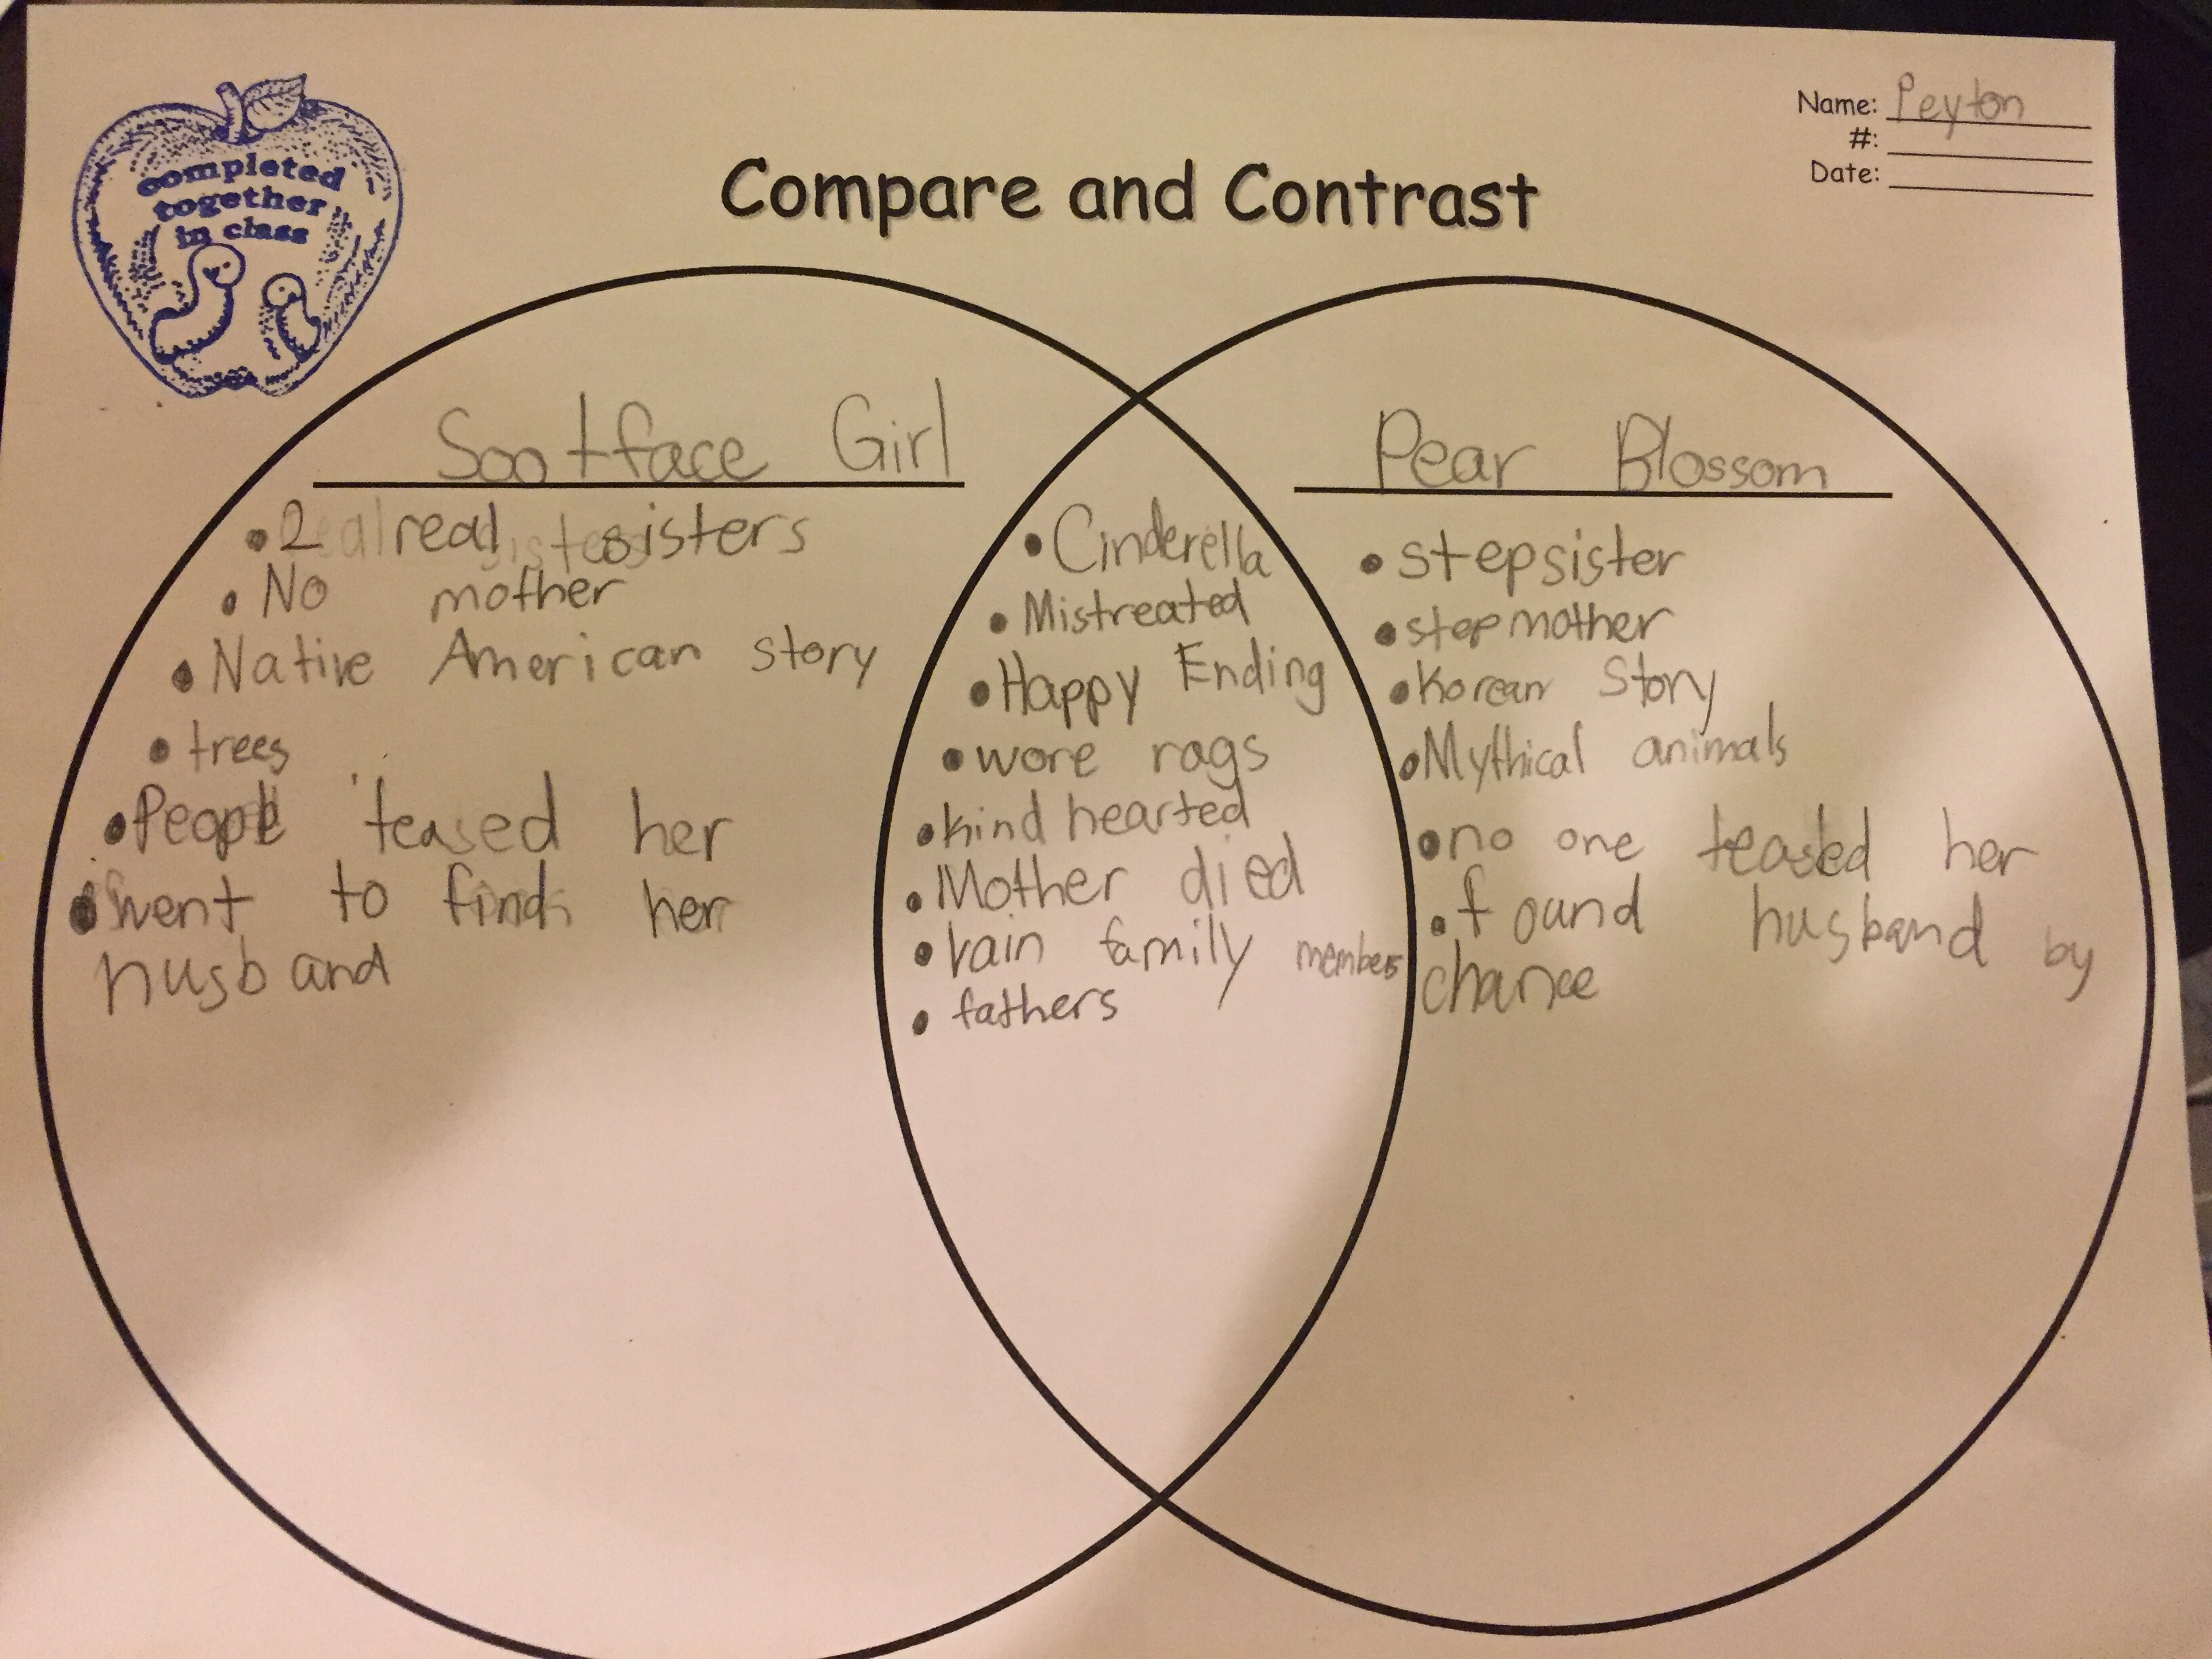 completed
together
in class
Name: Peyton
#:
Date:
Compare and Contrast
Sootface Girl
• 2 real sisters
• No mother
• Native American story
• trees
• People teased her
• went to find her
husband
• Cinderella
• Mistreated
• Happy Ending
• wore rags
• kind hearted
• Mother died
• vain family members
• fathers
Pear Blossom
• stepsister
• stepmother
• Korean Story
• Mythical animals
• no one teased her
• found husband by
chance